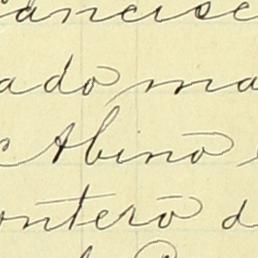 ancisc
ado ma
Abino
ontero d